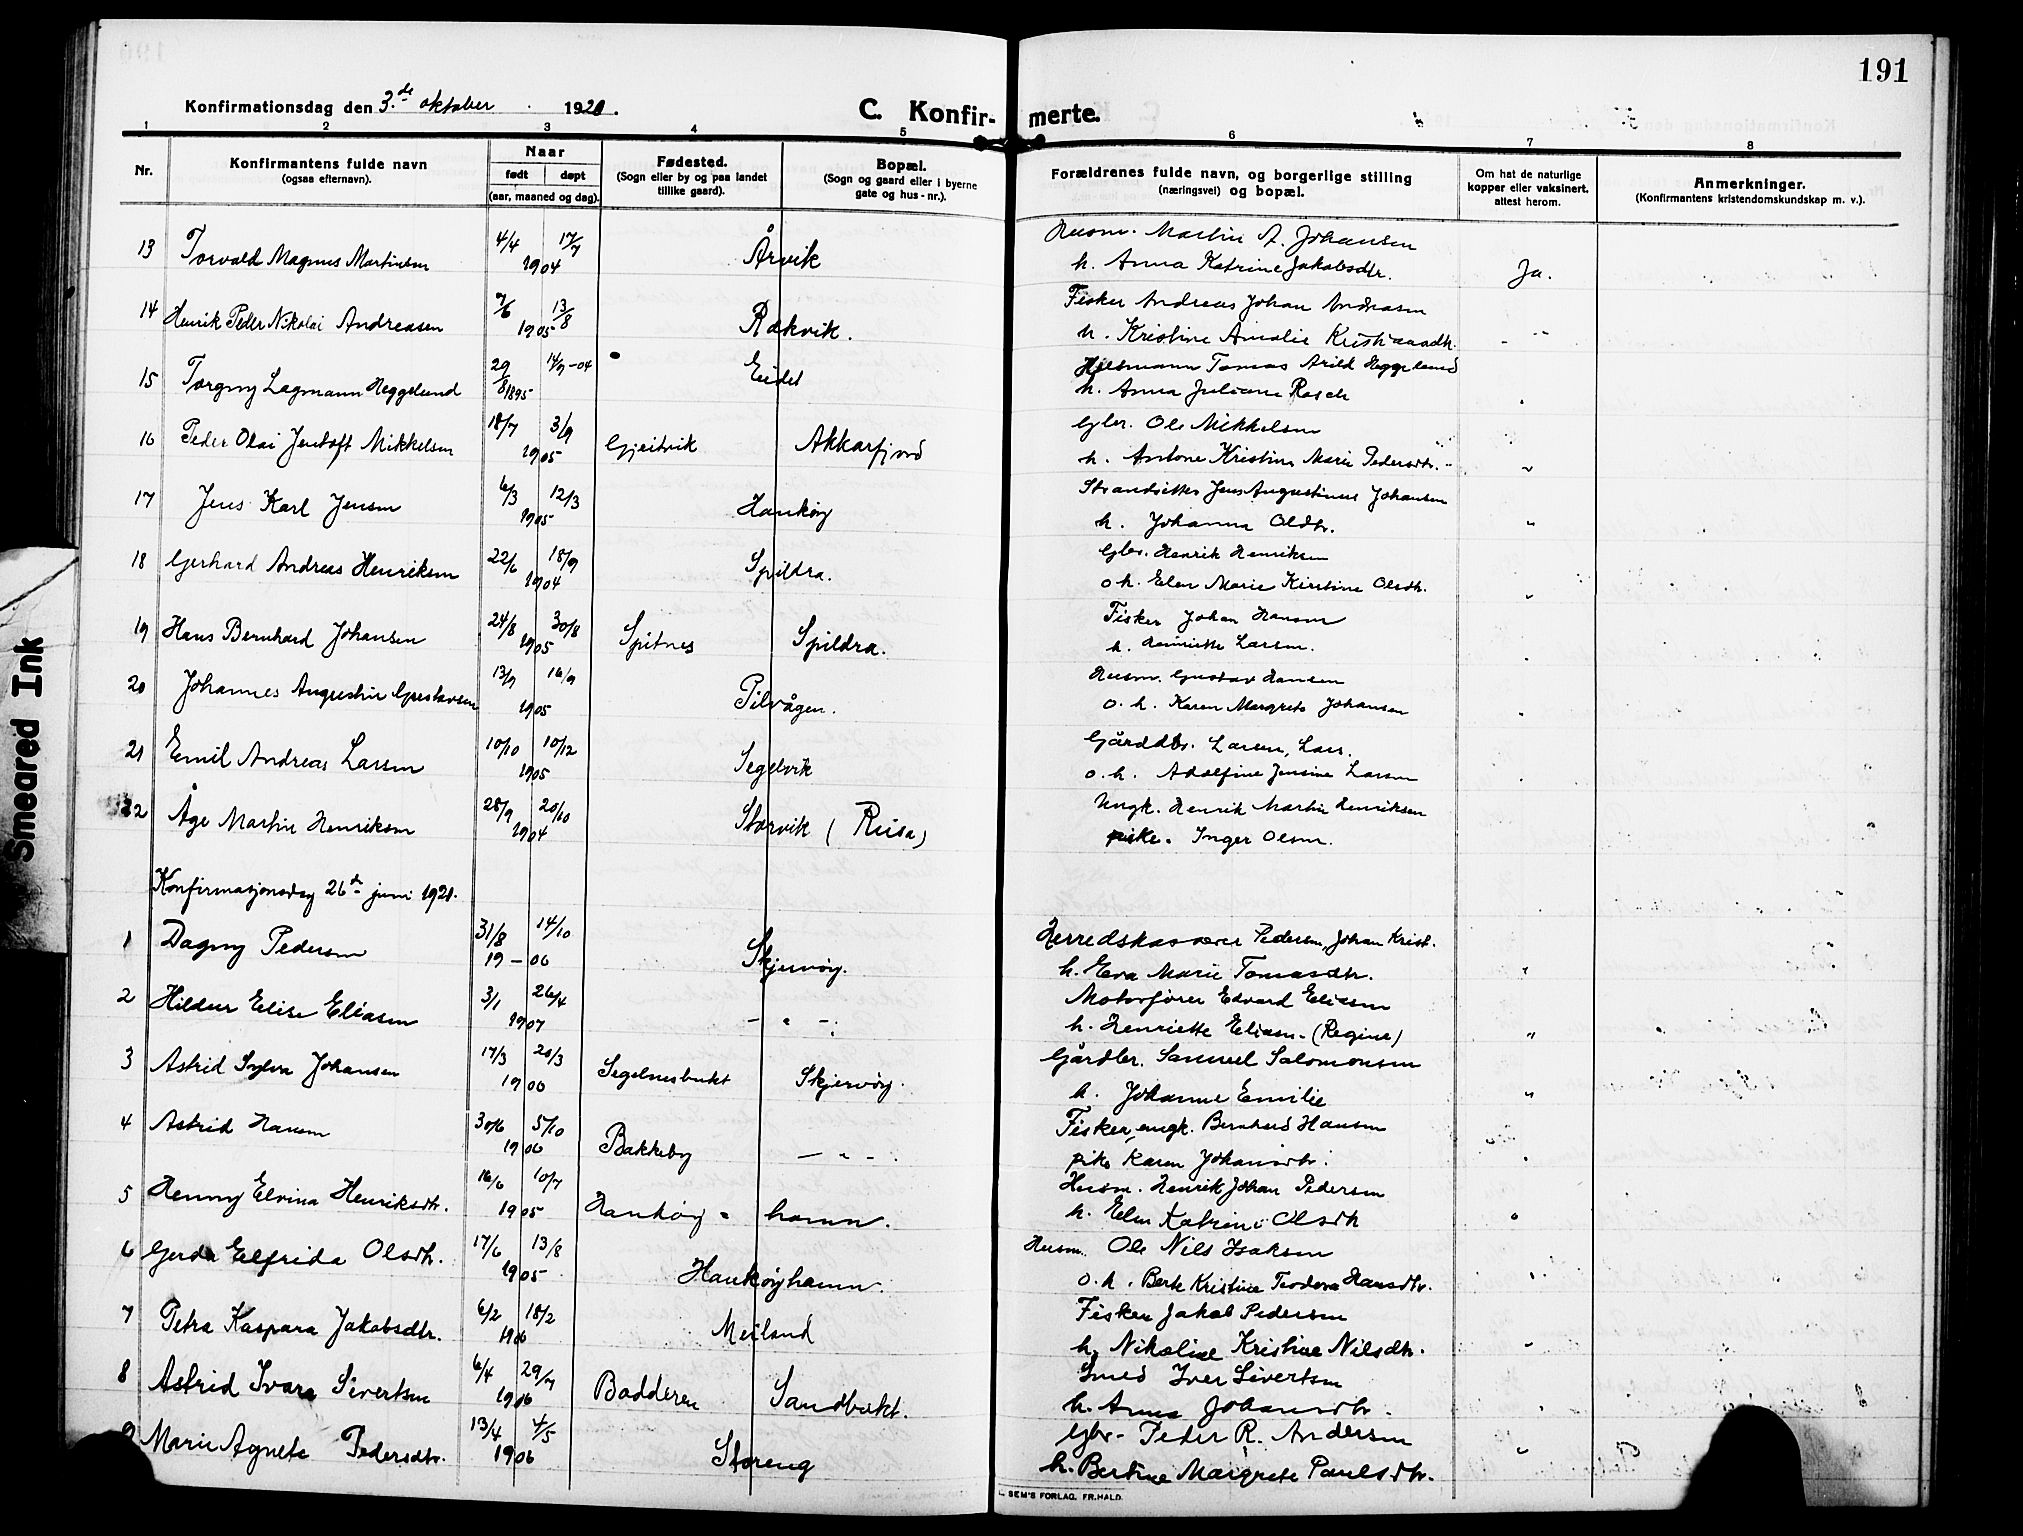 191
Konfirmationsdag den 3.de oktober 1920.
C. Konfir- merte.
1 2 3 4 5 6 7 8
Nr.
Konfirmantens fulde navn
(ogsaa efternavn).
Naar
født døpt
(aar, maaned og dag).
Fødested.
(Sogn eller by og paa landet
tillike gaard).
Bopæl.
(Sogn og gaard eller i byerne
gate og hus-nr.).
Forældrenes fulde navn, og borgerlige stilling
(næringsvei) og bopæl.
Om hat de naturlige
kopper eller vaksinert.
attest herom.
Anmerkninger.
(Konfirmantens kristendomskundskap m. v.).
13 Torvald Magnus Martinsen 4/4 17/7 1904 Årvik Husm. Martin A. Johansen
h. Anna Katrine Jakobsdtr. Ja.
14 Henrik Peder Nikolai Andreasen 7/6 13/8 1905 Rakvik. Fisker Andreas Johan Andreasen
h. Kristine Amalie Kristiansdtr. - " -
15 Torgny Lagmann Heggelund 29/8 1895 14/9-04 Eidet Tomas Arild Heggelund
h. Anna Juliane Rasch "
16 Peder Olai Jentoft Mikkelsen 18/7 3/9 1905 Gjeitvik Akkarfjord Gbr. Ole Mikkelsen
h. Antone Kristine Marie Pedersdtr. "
17 Jens Karl Jensen 6/3 12/3 1905 Haukøy Strandsitter Jens Augustinus Johansen
h. Johanna Olsdtr. "
18 Gerhard Andreas Henriksen 22/6 18/9 1904 Spildra. Gbr. Henrik Henriksen
o. h. Elen Marie Kirstine Olsdtr. "
19 Hans Bernhard Johansen 24/8 30/8 1905 Spitnes Spildra. Fisker Johan Hansen
h. Henriette Larsen. "
20 Johannes Augustin Gustavsen 13/9 16/9 1905 Pilvågen. Husm. Gustav Hansen
o. h. Karen Margrete Johansen "
21 Emil Andreas Larsen 10/10 10/12 1905 Segelvik Gårdbr. Larsen, Lars.
o. h. Adolfine Jensine Larsen "
22 Åge Martin Henriksen 28/9 20/10 1904 Storvik (Reisa) Ungk. Henrik Martin Henriksen
pike. Inger Olsen.
Konfirmasjonsdag 26de juni 1921.
1 Dagny Pedersen 31/8 14/10 19-06 Skjervøy. Herredskasserer Pedersen, Johan Krist.
h. Eva Marie Tomasdtr. "
2 Hildur Elise Eliasen 3/1 26/4 1907 - " - Motorfører Edvard Eliasen
h. Henriette Eliasn. (Regine) "
3 Astrid Sylva Johansen 17/3 20/3 1906 Segelnesbukt Skjervøy. Gårdbr. Samuel Salomonsen
h. Johanne Emilie "
4 Astrid Hansen 30/6 5/10 1906 Bakkeby - " - Fisker, ungk. Bernhard Hansen
pike Karen Johansdtr. "
5 Henny Elvina Henriksdtr. 16/6 10/7 1905 Haukøy - hamn. Husm. Henrik Johan Pedersen
h. Elen Katrine Olsdtr "
6 Gerda Elfrida Olsdtr. 17/6 13/8 1905 Haukøyhamn. Husm. Ole Nils Isaksen
o. h. Berte Kristine Teodora Hansdtr. "
7 Petra Kaspara Jakobsdtr. 6/2 18/2 1906 Meiland Fisker Jakob Pedersen
h. Nikoline Kristine Nilsdtr. "
8 Astrid Ivara Sivertsen 6/4 29/7 1906 Badderen Sandbukt. Smed Iver Sivertsen
h. Anna Johansdtr. "
9 Marie Agnete Pedersdtr. 13/4 4/5 1906 Storeng Gbr. Peder R. Andersen
h. Bertine Margrete Paulsdtr. "
SEM'S FORLAG, FR.HALD.
Smeared Ink